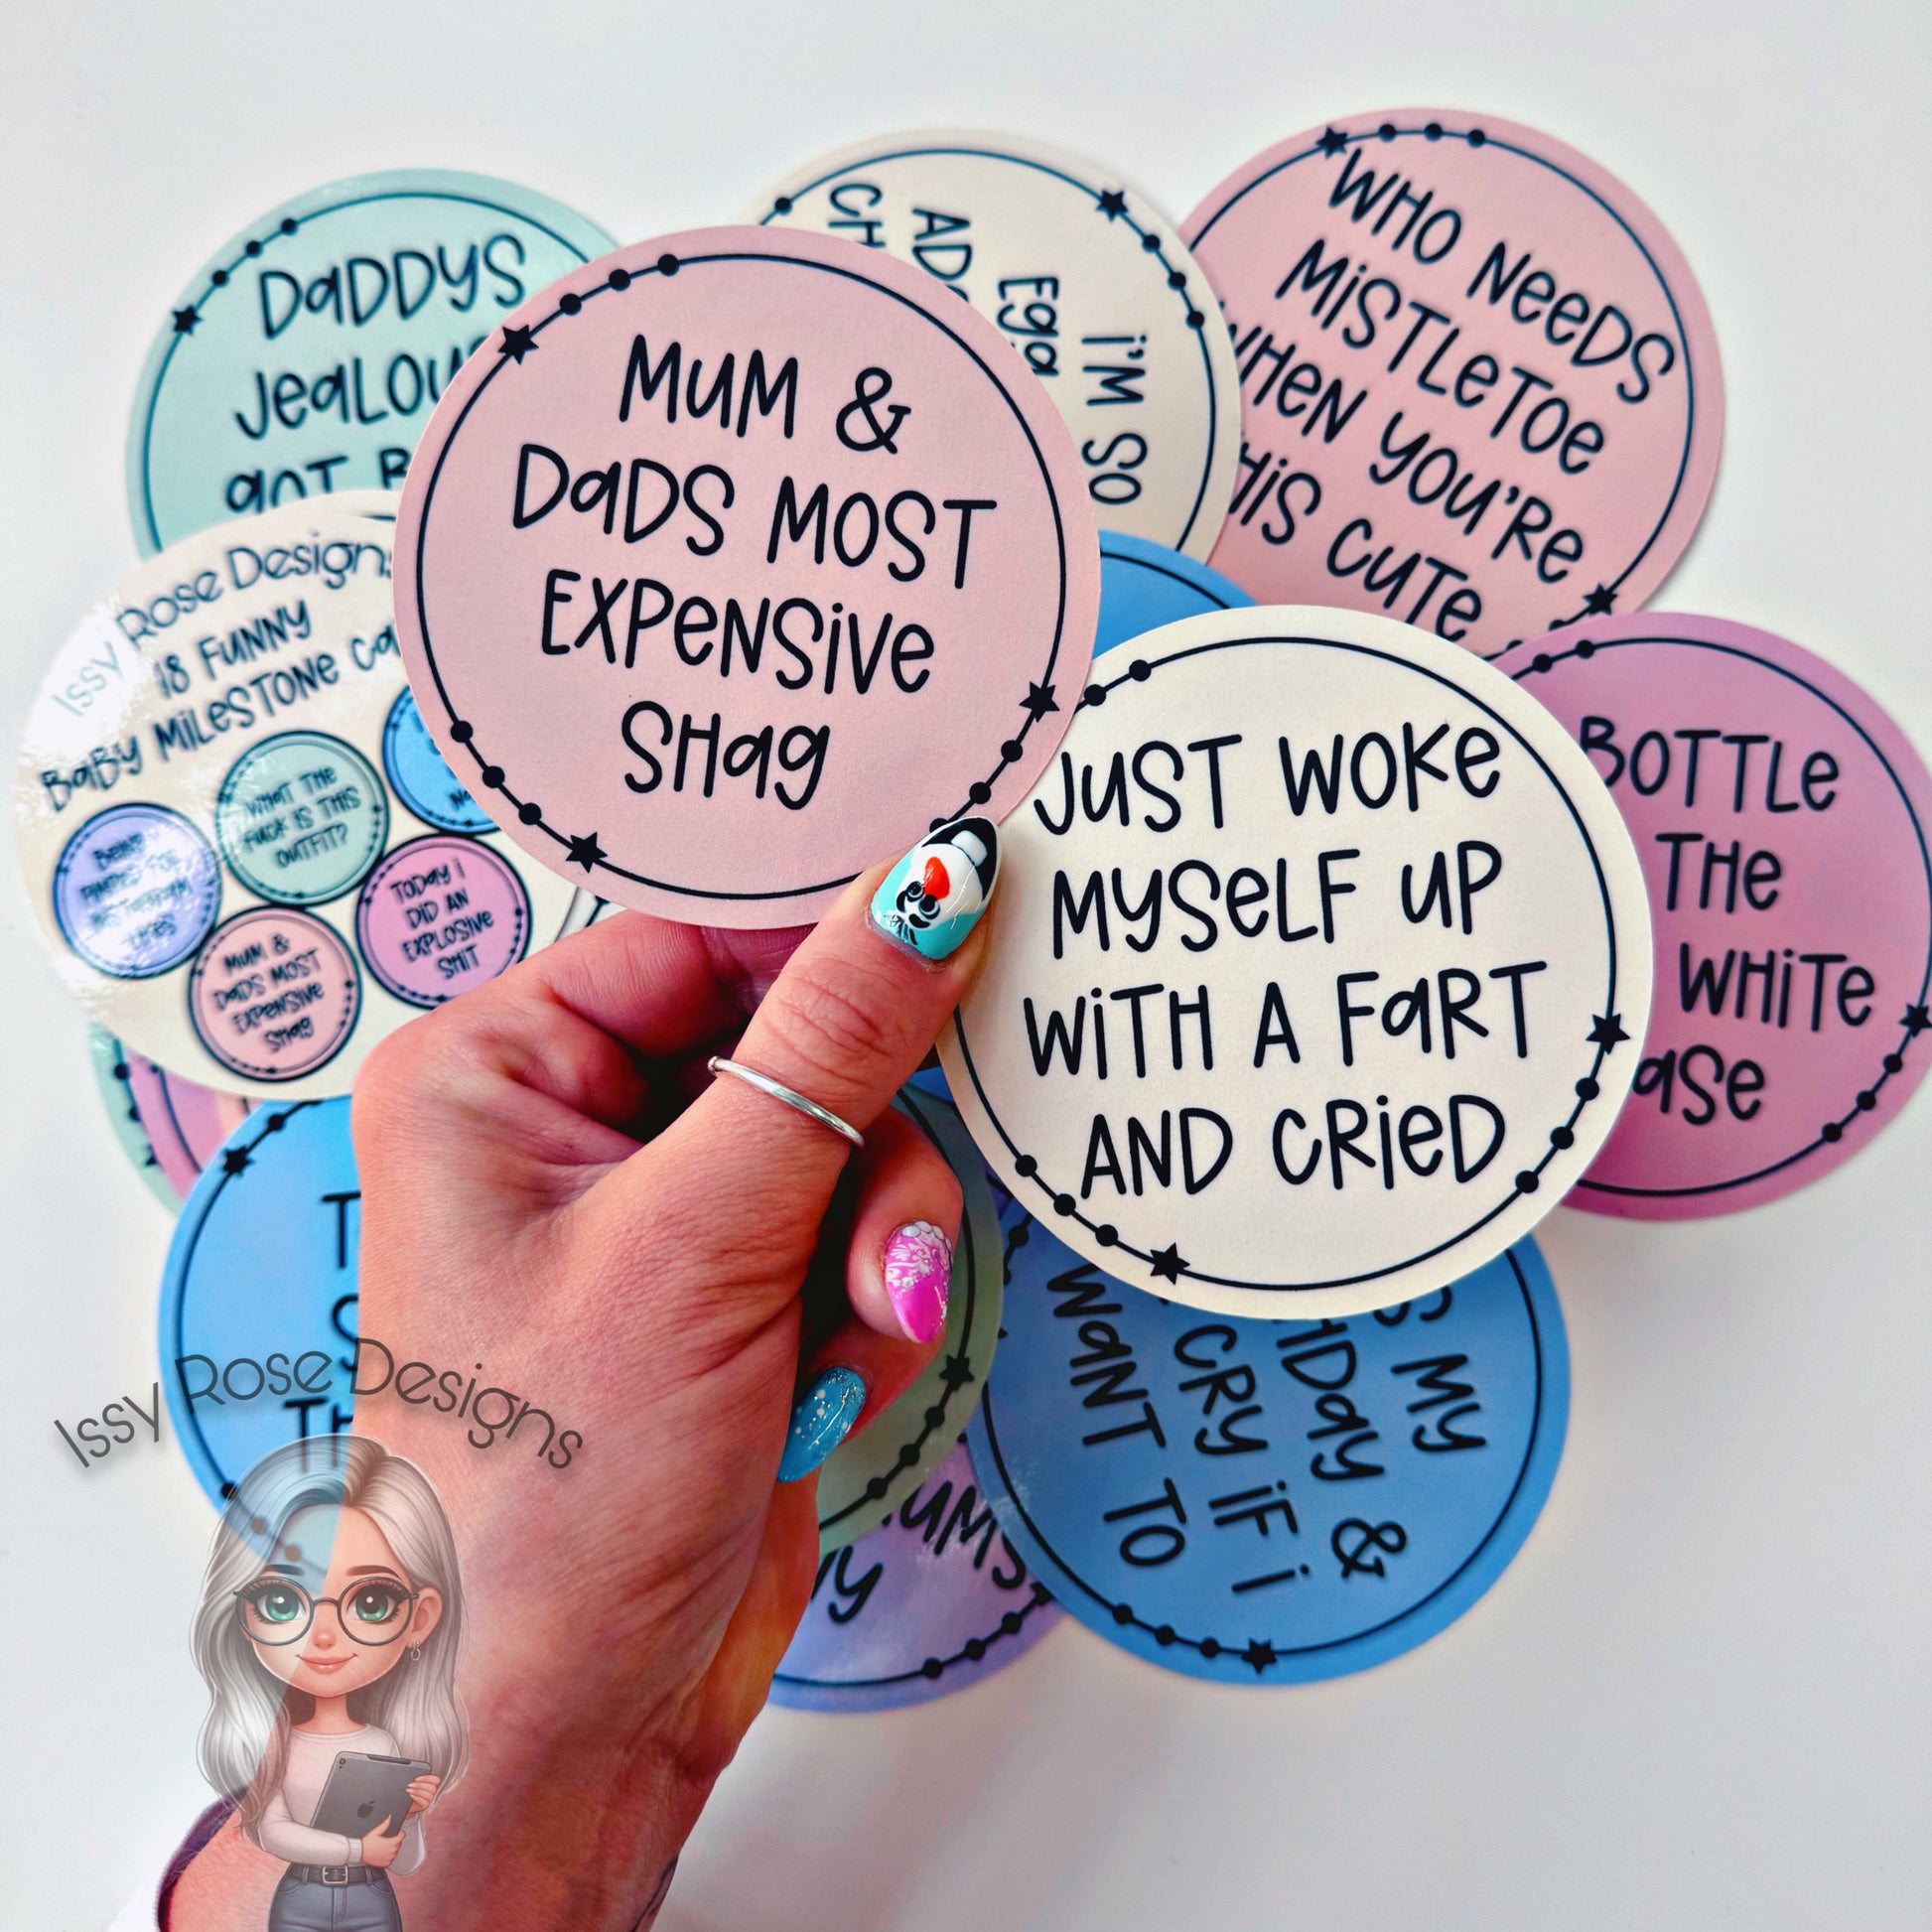 DADDYS
JEALOUS
GOT
CH
AD
AD
Egg
I'M SO
WHO NEEDS
MISTLETOE
WHEN YOU'RE
THIS CUTE
MUM &
DADS MOST
EXPENSIVE
SHAG
Issy Rose Designs
18 FUNNY
BABY MILESTONE
WHAT THE
FUCK IS THIS
OUTFIT?
TODAY I
DID AN
EXPLOSIVE
SHIT
MUM &
DADS MOST
EXPENSIVE
SHAG
JUST WOKE
MYSELF UP
WITH A FART
AND CRIED
BOTTLE
THE
WHITE
ASE
MY
&
CRY IF I
WANT TO
Issy Rose Designs